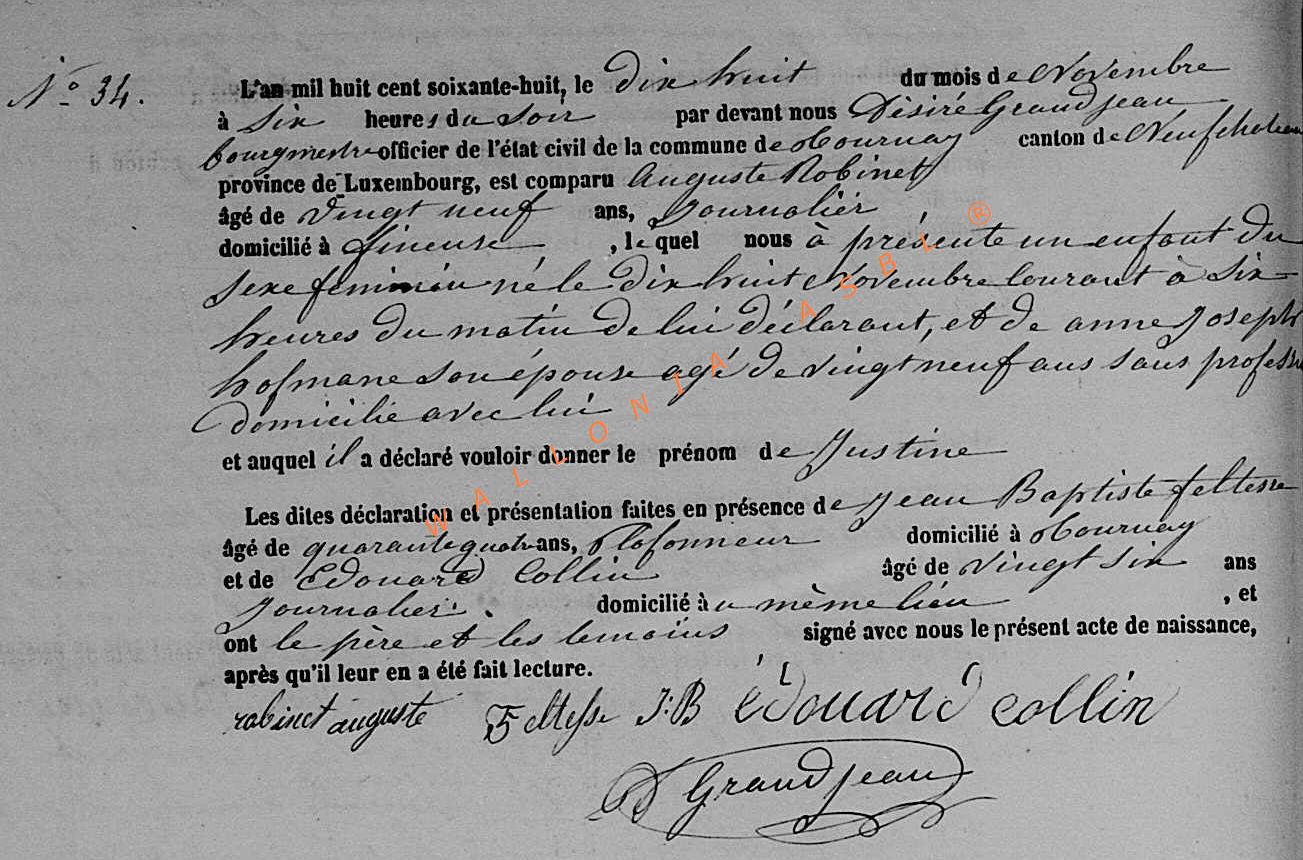 N° 34.
L'an mil huit cent soixante-huit, le dix huit du mois de Novembre
à six heures du soir par devant nous Désiré Grandjean
bourgmestre officier de l'état civil de la commune de Tournay canton de Neufchateau
province de Luxembourg, est comparu Auguste Robinet
âgé de vingt neuf ans, journalier
domicilié à Gineuse, lequel nous à présenté un enfant du
sexe feminin né le dix huit Novembre courant à six
heures du matin de lui déclarant, et de anne joseph
hofmane son épouse agé de vingt neuf ans sans profession
domicilié avec lui
et auquel il a déclaré vouloir donner le prénom de Justine
Les dites déclaration et présentation faites en présence de Jean Baptiste feltesse
âgé de quarante quatre ans, Plafonneur domicilié à Tournay
et de Edouard Collin âgé de vingt six ans
journalier. domicilié au même lieu, et
ont le père et les temoins signé avec nous le présent acte de naissance,
après qu'il leur en a été fait lecture.
robinet auguste Feltesse J.B édouard collin
D Grandjean
WALLONIA ASBL ®